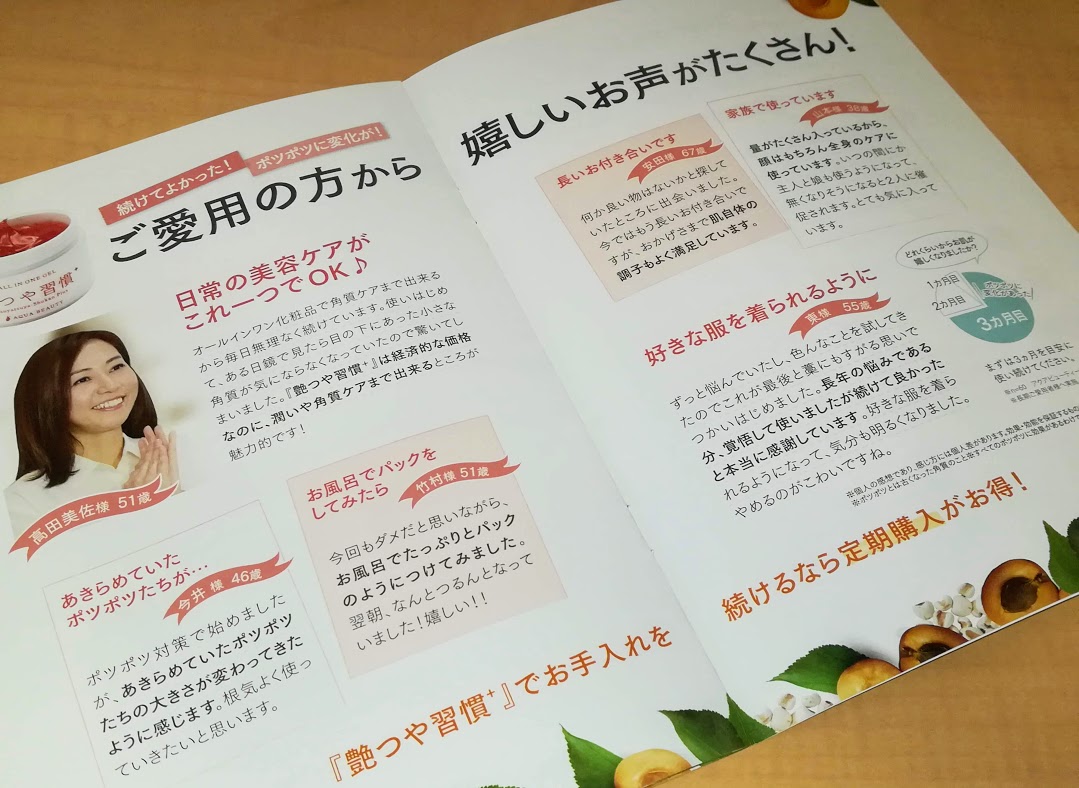 続けてよかった!
ポツポツに変化が!
ご愛用の方から
嬉しいお声がたくさん!
ALL IN ONE GEL
つや習慣+
AQUA BEAUTY
日常の美容ケアが
これ一つでOK♪
オールインワン化粧品で角質ケアまで出来る
から毎日無理なく続けています。使いはじめ
て、ある日鏡で見たら目の下にあった小さな
角質が気にならなくなっていたので驚いてし
まいました。『艶つや習慣+』は経済的な価格
なのに、潤いや角質ケアまで出来るところが
魅力的です!
高田美佐様 51歳
あきらめていた
ポツポツたちが…
今井 様 46歳
ポツポツ対策で始めました
が、あきらめていたポツポツ
たちの大きさが変わってきた
ように感じます。根気よく使っ
ていきたいと思います。
お風呂でパックを
してみたら
竹村様 51歳
今回もダメだと思いながら、
お風呂でたっぷりとパック
のようにつけてみました。
翌朝、なんとつるんとなって
いました!嬉しい!!
長いお付き合いです
安田様 67歳
何か良い物はないかと探して
いたところに出会いました。
今ではもう長いお付き合いで
すが、おかげさまで肌自体の
調子もよく満足しています。
家族で使っています
山本様 38歳
量がたくさん入っているから、
顔はもちろん全身のケアに
使っています。いつの間にか
主人と娘も使うようになって、
無くなりそうになると2人に催
促されます。とても気に入って
います。
好きな服を着られるように
東様 55歳
ずっと悩んでいたし、色んなことを試してき
たのでこれが最後と藁にもすがる思いで
つかいはじめました。長年の悩みである
分、覚悟して使いましたが続けて良かった
と本当に感謝しています。好きな服を着ら
れるようになって、気分も明るくなりました。
やめるのがこわいですね。
どれくらいからお肌が
嬉しくなりましたか?
1ヵ月目
2ヵ月目
ポツポツに
変化があった!
3ヵ月目
まずは3ヵ月を目安に
使い続けてください。
※n=60 アクアビューティー
※個人の感想であり、感じ方には個人差があります。効果・効能を保証するもの
※ポツポツとは古くなった角質のこと※すべてのポツポツに効果があるわけで
『艶つや習慣+』でお手入れを
続けるなら定期購入がお得!